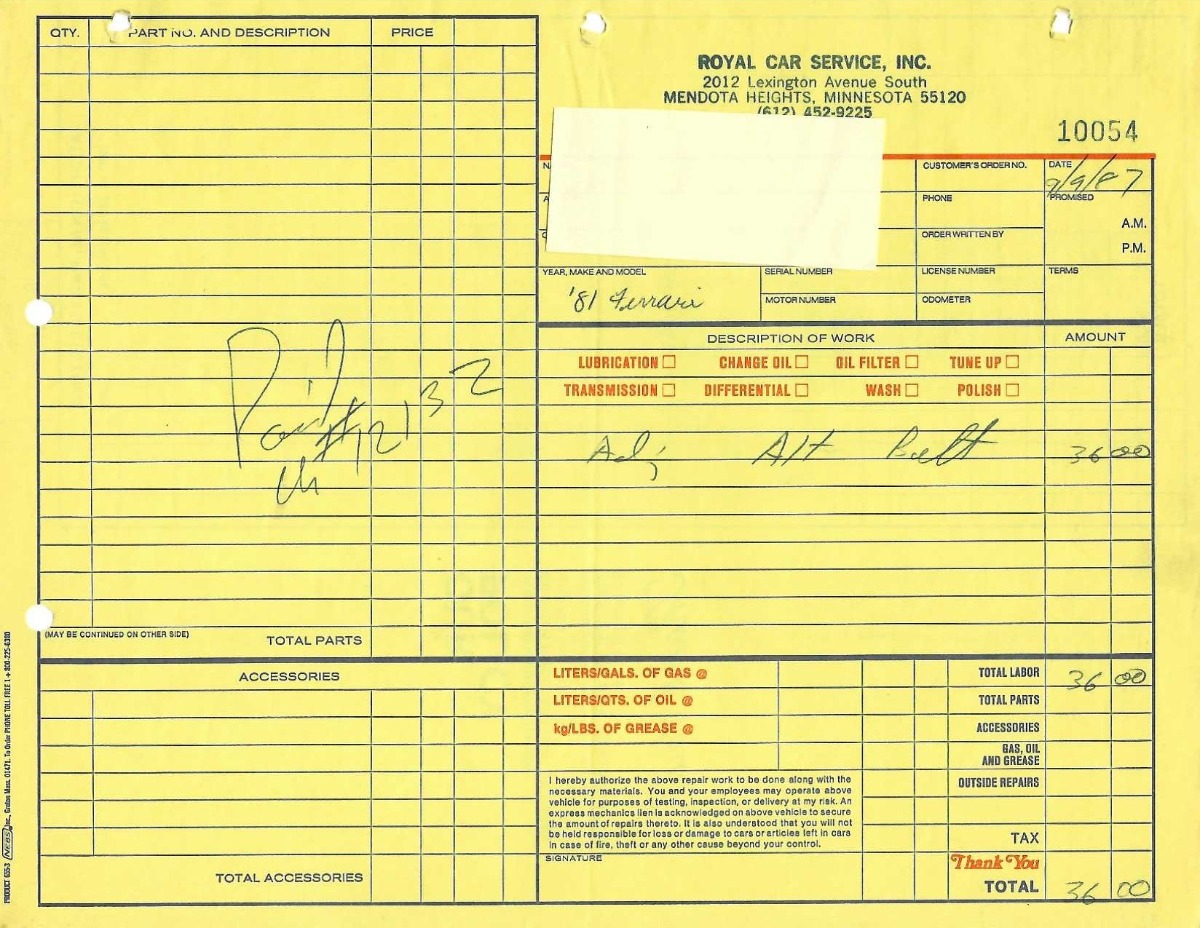 QTY. PART NO. AND DESCRIPTION PRICE
ROYAL CAR SERVICE, INC.
2012 Lexington Avenue South
MENDOTA HEIGHTS, MINNESOTA 55120
(612) 452-9225
10054
CUSTOMER'S ORDER NO. DATE
9/9/87
PHONE PROMISED
A.M.
ORDER WRITTEN BY
P.M.
YEAR, MAKE AND MODEL SERIAL NUMBER LICENSE NUMBER TERMS
'81 Ferrari
MOTOR NUMBER ODOMETER
DESCRIPTION OF WORK AMOUNT
LUBRICATION CHANGE OIL OIL FILTER TUNE UP
TRANSMISSION DIFFERENTIAL WASH POLISH
Adj Alt Belt 36 00
Paid
#12132
(MAY BE CONTINUED ON OTHER SIDE) TOTAL PARTS
ACCESSORIES
TOTAL ACCESSORIES
LITERS/GALS. OF GAS @ TOTAL LABOR 36 00
LITERS/QTS. OF OIL @ TOTAL PARTS
kg/LBS. OF GREASE @ ACCESSORIES
GAS, OIL
AND GREASE
OUTSIDE REPAIRS
I hereby authorize the above repair work to be done along with the
necessary materials. You and your employees may operate above
vehicle for purposes of testing, inspection, or delivery at my risk. An
express mechanics lien is acknowledged on above vehicle to secure
the amount of repairs thereto. It is also understood that you will not
be held responsible for loss or damage to cars or articles left in cars
in case of fire, theft or any other cause beyond your control.
TAX
SIGNATURE
Thank You
TOTAL 36 00
PRODUCT 655-3 NEBS Inc., Groton Mass. 01471. To Order PHONE TOLL FREE 1 + 800-225-6380